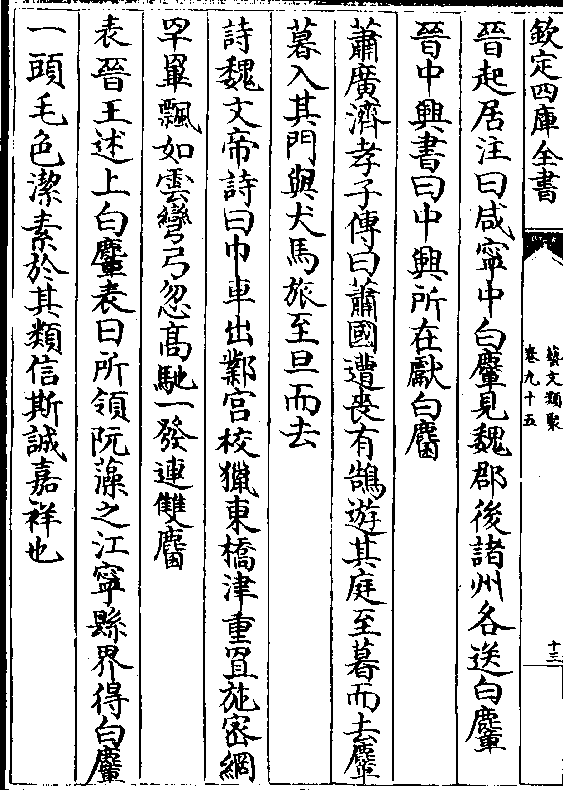 欽定四庫全書
藝文類聚
卷九十五
十三
晉起居注曰咸寧中白麞見魏郡後諸州各送白麞
晉中興書曰中興所在獻白麕
蕭廣濟孝子傳曰蕭國遭喪有鵠遊其庭至暮而去麞
暮入其門與犬馬旅至旦而去
詩魏文帝詩曰巾車出鄴宮校獵東橋津重罝施密網
罕罼飄如雲彎弓忽高馳一發連雙麕
表晉王述上白麞表曰所領阮藻之江寧縣界得白麞
一頭毛色潔素於其類信斯誠嘉祥也